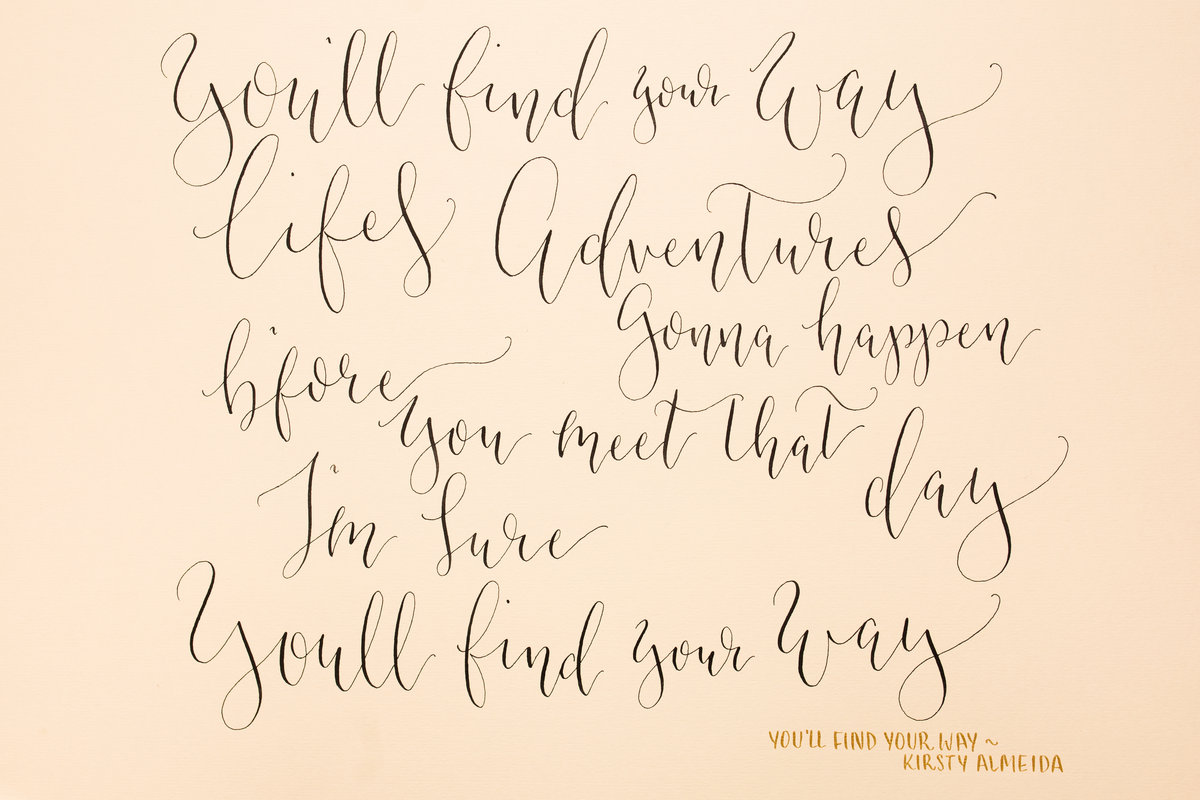 You'll find your Way
lifes Adventures
Gonna happen
b'fore
you meet that
day
I'm Sure
You'll find your Way
YOU'LL FIND YOUR WAY ~
KIRSTY ALMEIDA